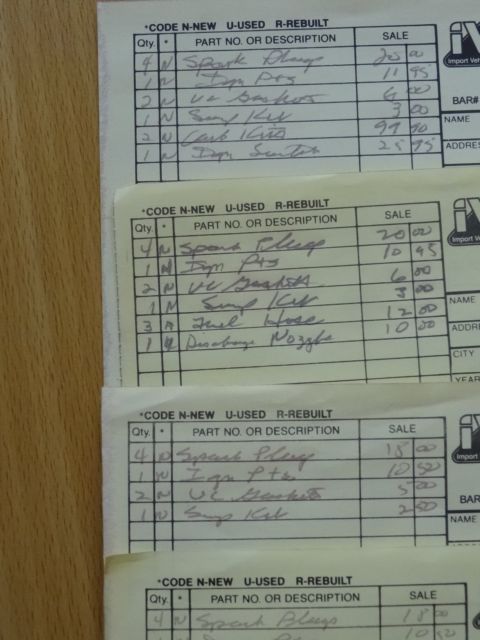 *CODE N-NEW U-USED R-REBUILT
Qty. * PART NO. OR DESCRIPTION SALE
4 N Spark Plugs 20 00
1 N Ign Pts 11 95
2 N VC Gaskets 6 00
1 N Sump Kit 3 00
2 N Carb Kits 99 90
1 N Ign Switch 25 95
Import Veh
BAR#
NAME
ADDRES
*CODE N-NEW U-USED R-REBUILT
Qty. * PART NO. OR DESCRIPTION SALE
4 N Spark Plugs 20 00
1 N Ign Pts 10 95
2 N VC Gaskets 6 00
1 N Sump Kit 3 00
3 N Fuel Hose 12 00
1 N Discharge Nozzle 10 00
Import
NAME
ADDR
CITY
YEAR
*CODE N-NEW U-USED R-REBUILT
Qty. * PART NO. OR DESCRIPTION SALE
4 N Spark Plugs 18 00
1 N Ign Pts 10 50
2 N VC Gaskets 5 00
1 N Sump Kit 2 50
Import
BAR
NAME
*CODE N-NEW U-USED R-REBUILT
Qty. * PART NO. OR DESCRIPTION SALE
4 N Spark Plugs 18 00
10 50